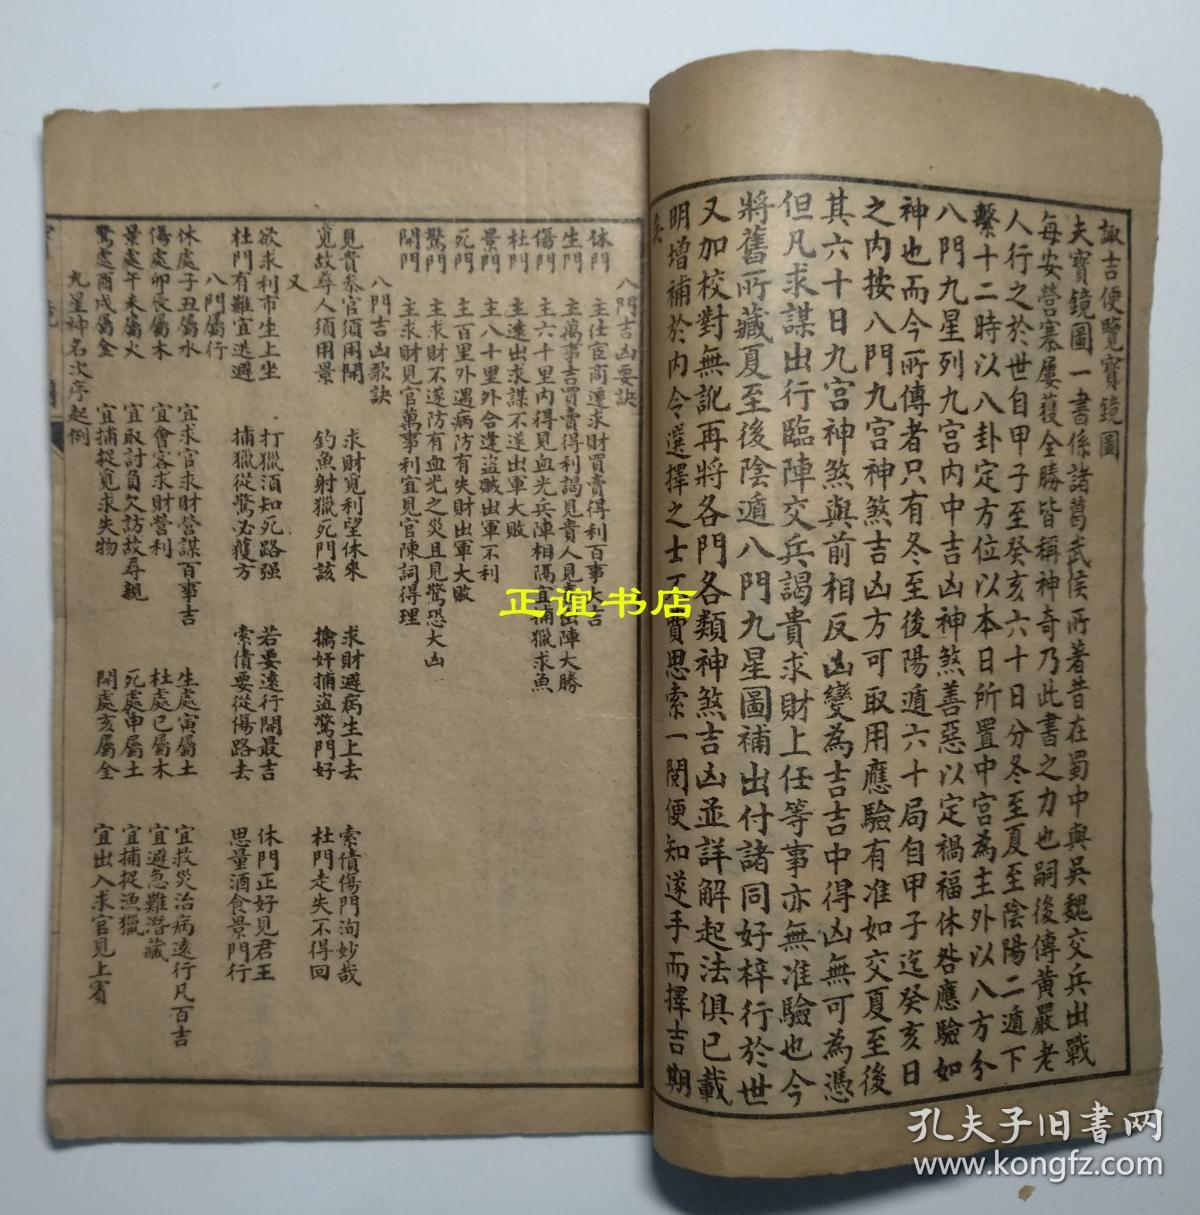 諏吉便覽寶鏡圖
夫寶鏡圖一書係諸葛武侯所著昔在蜀中與吳魏交兵出戰
每安營寨屢獲全勝皆稱神奇乃此書之力也嗣後傳黃嚴老
人行之於世自甲子至癸亥六十日分冬至夏至陰陽二遁下
繫十二時以八卦定方位以本日所置中宮為主外以八方分
八門九星列九宮內中吉凶神煞善惡以定禍福休咎應驗如
神也而今所傳者只有冬至後陽遁六十局自甲子迄癸亥日
之內按八門九宮神煞吉凶方可取用應驗有准如交夏至後
其六十日九宮神煞與前相反凶變為吉吉中得凶無可為憑
但凡求謀出行臨陣交兵謁貴求財上任等事亦無准驗也今
將舊所藏夏至後陰遁八門九星圖補出付諸同好梓行於世
又加校對無訛再將各門各類神煞吉凶並詳解起法俱已載
明增補於內令選擇之士不費思索一閱便知遂手而擇吉期
矣
八門吉凶要訣
休門 主仕宦商遷求財買賣得利百事大吉
生門 主萬事吉買賣得利謁見貴人見貴出陣大勝
傷門 主六十里內得見血光兵陣相隔宜捕獵求魚
杜門 主遠出求謀不遂出軍大敗
景門 主八十里外合逢盜賊出軍不利
死門 主百里外遇病防有失財出軍大敗
驚門 主求財不遂防有血光之災且見驚恐大凶
開門 主求財見官萬事利宜見官陳詞得理
八門吉凶歌訣
見貴參官須用開 求財覓利望休來 求財避病生上去 索債傷門洵妙哉
覓故尋人須用景 釣魚射獵死門該 擒奸捕盜驚門好 杜門走失不得回
又
欲求利市生上坐 打獵須知死路强 若要遠行開最吉 休門正好見君王
杜門有難宜迯避 捕獵從驚必獲方 索債要從傷路去 思量酒食景門行
八門屬行
休處子丑屬水 宜求官求財營謀百事吉 生處寅屬土 宜救災治病遠行凡百吉
傷處卯辰屬木 宜會客求財營利 杜處巳屬木 宜避急難潛藏
景處午未屬火 宜取討負欠訪故尋親 死處申屬土 宜捕捉漁獵
驚處酉戌屬金 宜捕捉覓求失物 開處亥屬金 宜出入求官見上賓
九星神名次序起例
正谊书店
孔夫子旧书网
www.kongfz.com